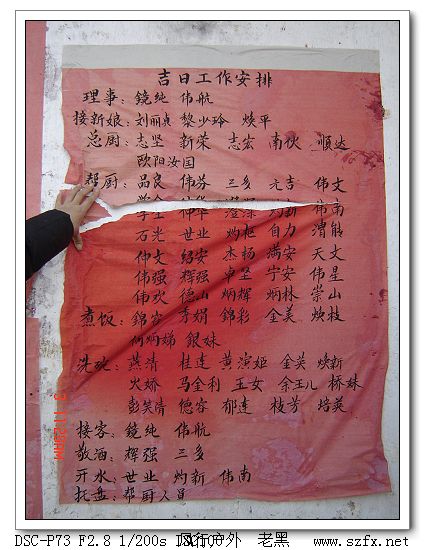 吉日工作安排
理事：鏡纯 伟航
接新娘：刘丽贞 黎少玲 焕平
总厨：志坚 新荣 志宏 南伙 顺达
欧阳汝国
帮厨：品良 伟芬 三多 元吉 伟文
伟南
石光 世业 灼枢 自力 渭能
仲文 绍安 杰杨 满安 天文
伟强 辉强 卓坚 宁安 伟星
伟欢 德山 炳辉 炳林 崇山
煮饭：錦容 秀娟 錦彩 金美 焕枝
何炳娣 銀妹
洗碗：燕清 桂连 黄演姬 金英 焕新
火娇 马金利 玉女 余玉儿 桥妹
彭笑清 德容 郁连 枝芳 培英
接客：鏡纯 伟航
敬酒：辉强 三多
开水：世业 灼新 伟南
托盘：帮厨人員
DSC-P73 F2.8 1/200s 风行户外 老黑 www.szfx.net